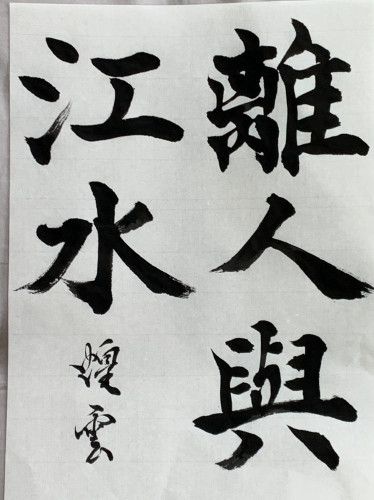 離人與
江水
煌雲